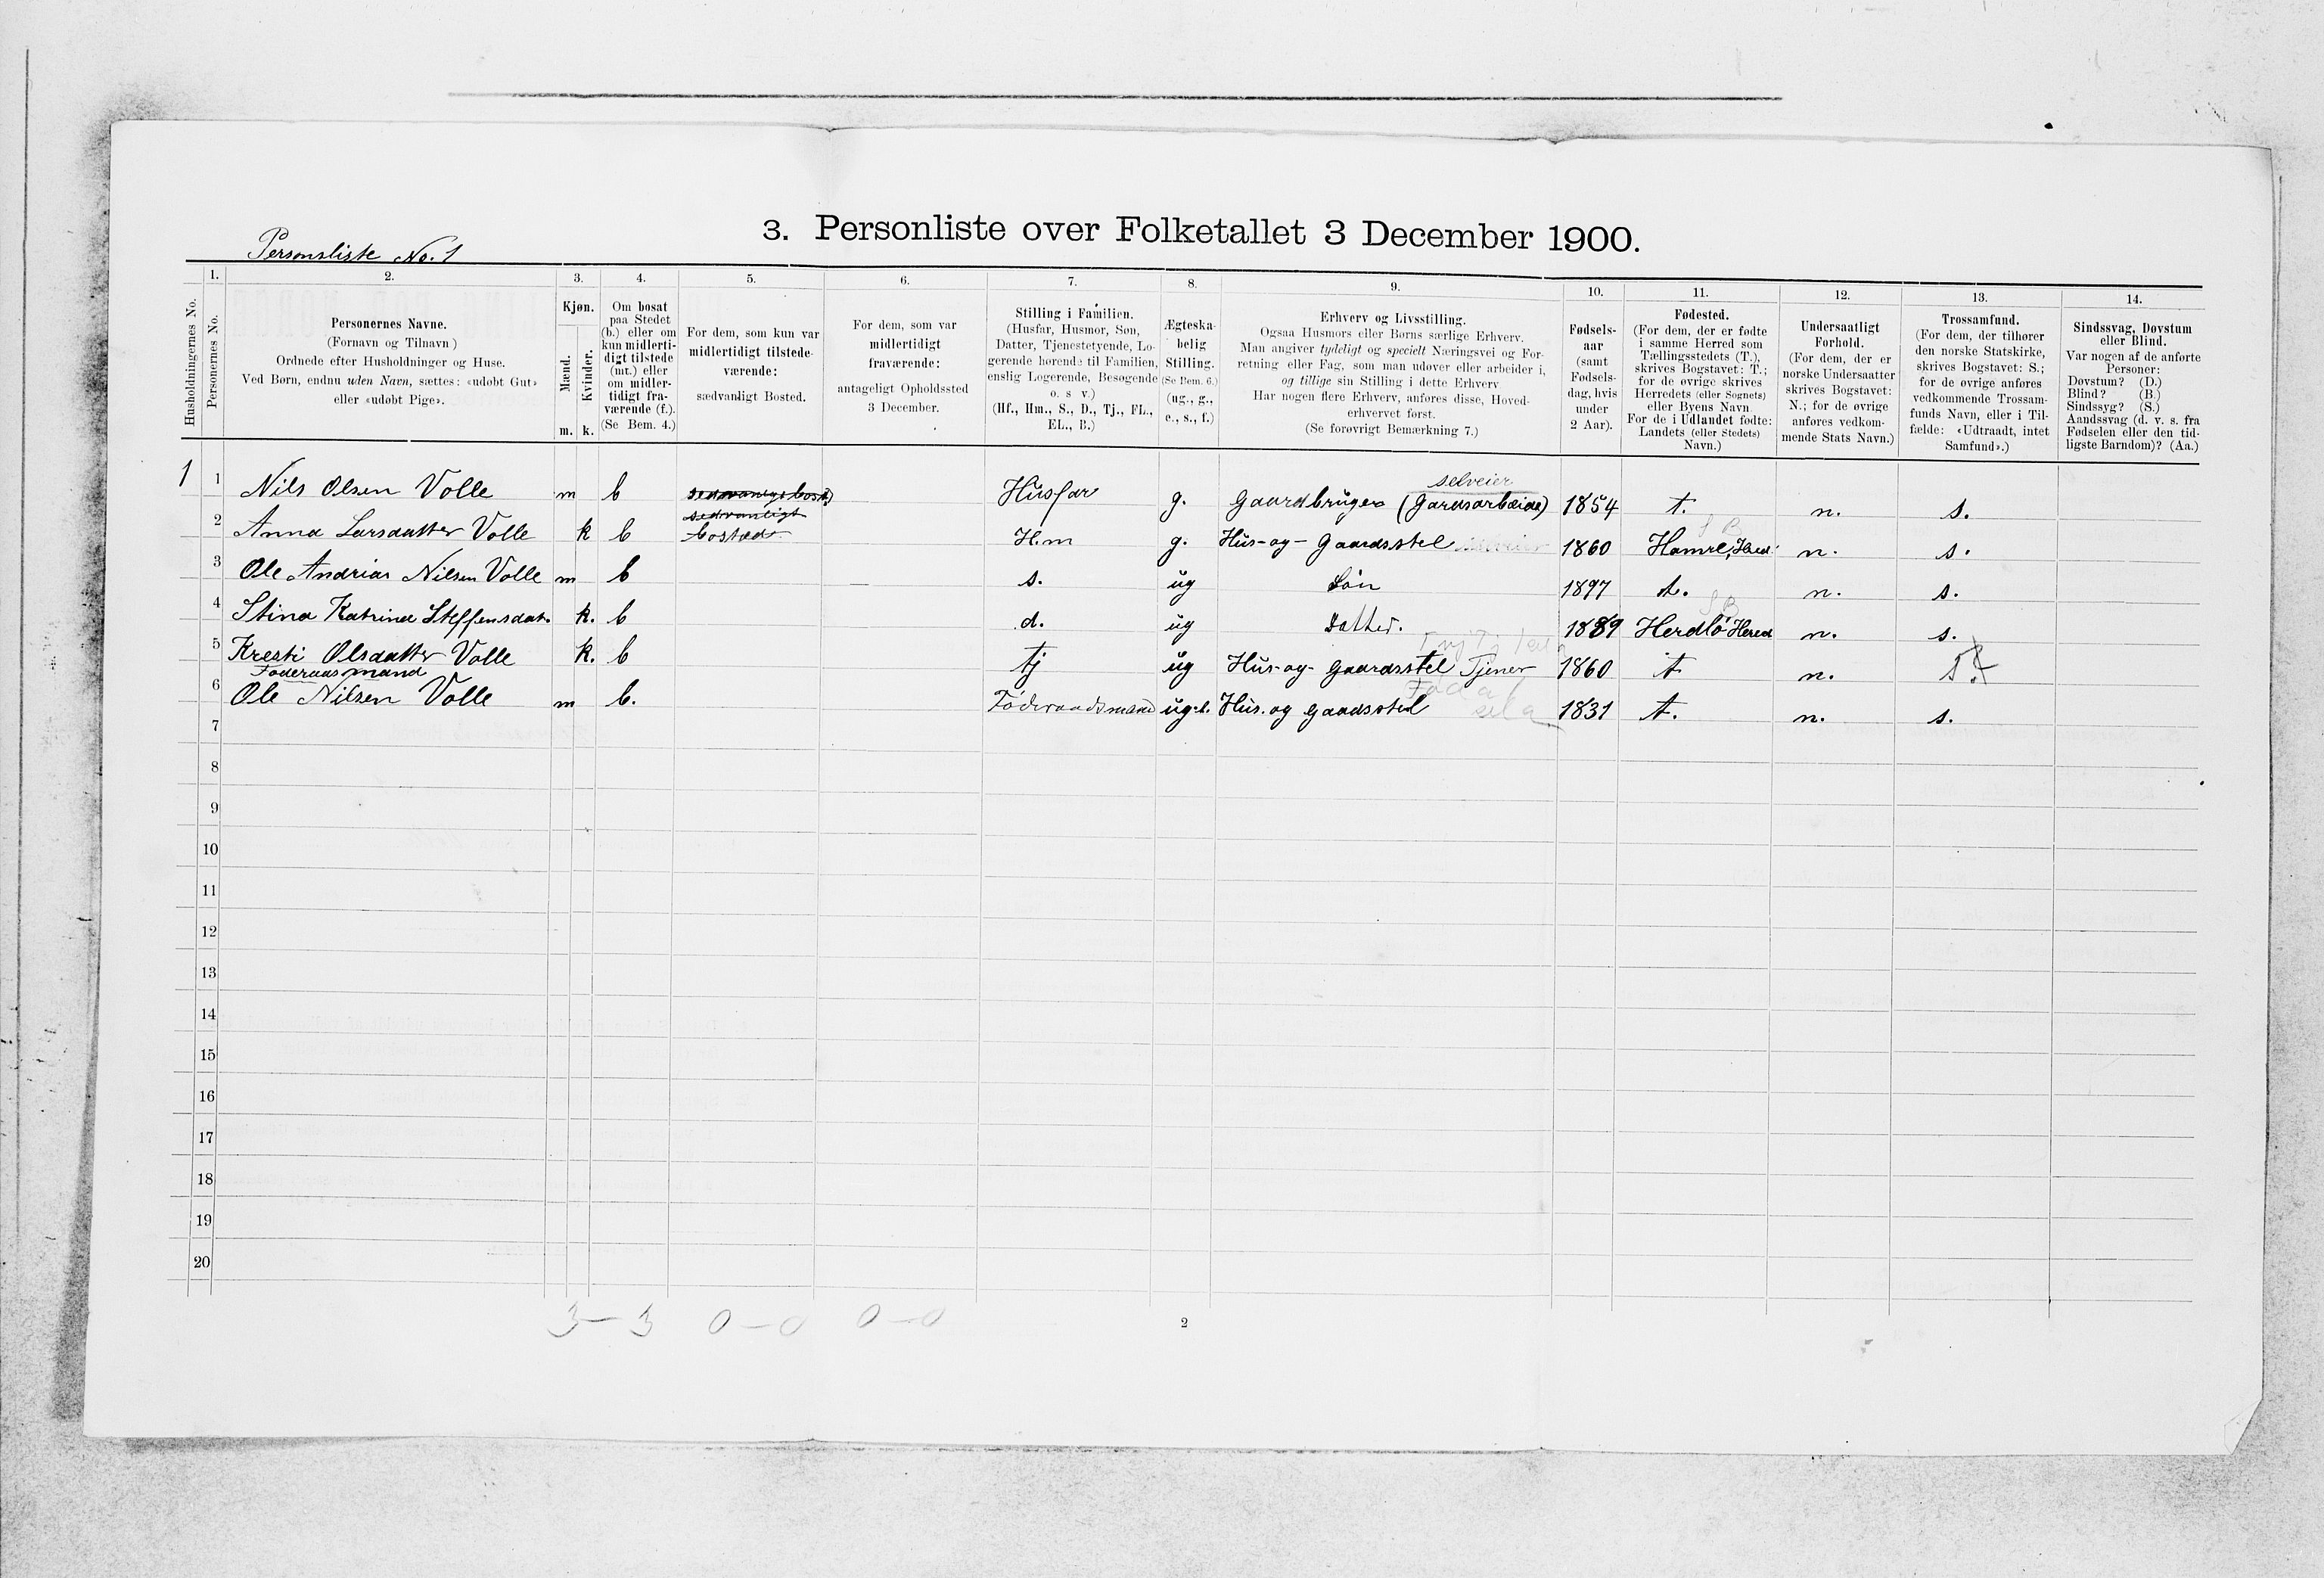 3. Personliste over Folketallet 3 December 1900.
Personsliste No. 1
1. 2. 3. 4. 5. 6. 7. 8. 9. 10. 11. 12. 13. 14.
Husholdningernes No.
Personernes No.
Personernes Navne.
(Fornavn og Tilnavn)
Ordnede efter Husholdninger og Huse.
Ved Børn, endnu uden Navn, sættes: «udøbt Gut»
eller «udøbt Pige».
Kjøn.
Mænd.
Kvinder.
m. k.
Om bosat
paa Stedet
(b.) eller om
kun midlerti-
digt tilstede
(mt.) eller
om midler-
tidigt fra-
værende (f.).
(Se Bem. 4.)
For dem, som kun var
midlertidigt tilstede-
værende:
sædvanligt Bosted.
For dem, som var
midlertidigt
fraværende:
antageligt Opholdssted
3 December.
Stilling i Familien.
(Husfar, Husmor, Søn,
Datter, Tjenestetyende, Lo-
gerende hørende til Familien,
enslig Logerende, Besøgende
o. s v.)
(Hf., Hm., S., D., Tj., FL.,
EL., B.)
Ægteska-
belig
Stilling.
(Se Bem. 6.)
(ug., g.,
e., s., f.)
Erhverv og Livsstilling.
Ogsaa Husmors eller Børns særlige Erhverv.
Man angiver tydeligt og specielt Næringsvei og For-
retning eller Fag, som man udøver eller arbeider i,
og tillige sin Stilling i dette Erhverv
Har nogen flere Erhverv, anføres disse, Hoved-
erhvervet først.
(Se forøvrigt Bemærkning 7.)
Fødsels-
aar
(samt
Fødsels-
dag, hvis
under
2 Aar).
Fødested.
(For dem, der er fødte
i samme Herred som
Tællingsstedets (T.),
skrives Bogstavet: T.;
for de øvrige skrives
Herredets (eller Sognets)
eller Byens Navn.
For de i Udlandet fødte:
Landets (eller Stedets)
Navn.)
Undersaatligt
Forhold.
(For dem, der er
norske Undersaatter
skrives Bogstavet:
N.; for de øvrige
anføres vedkom-
mende Stats Navn.)
Trossamfund.
(For dem, der tilhører
den norske Statskirke,
skrives Bogstavet: S.;
for de øvrige anføres
vedkommende Trossam-
funds Navn, eller i Til-
fælde: «Udtraadt, intet
Samfund».)
Sindssvag, Døvstum
eller Blind.
Var nogen af de anførte
Personer:
Døvstum? (D.)
Blind? (B.)
Sindssyg? (S.)
Aandssvag (d. v. s. fra
Fødselen eller den tid-
ligste Barndom)? (Aa.)
selveier
1 1 Nils Olsen Volle m b sedvanligt bosted Husfar g. Gaardbruger (Gardsarbeide) 1854 t. n. s.
sedvanligt
S B
2 Anna Larsdatter Volle k b bosted H.m g. Hus-og-Gaardsstel 1860 Hamre, Hered n. s.
3 Ole Andrias Nilsen Volle m b s. ug Søn 1897 t. n. s.
S B
4 Stina Katrina Steffensdat. k. b d. ug Datter. 1889 Herdlö Hered n. s.
5 Kresti Olsdatter Volle k. b tj ug Hus-og-Gaardsstel Tjener 1860 t n.
Föderaasmand
6 Ole Nilsen Volle m b. Föderaadsmand ug. Hus. og gaardsstel 1831 t. n. s.
7
8
9
10
11
12
13
14
15
16
17
18
19
20
3-3 0-0 0-0
2